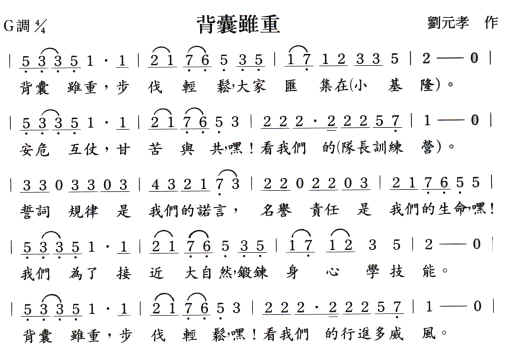 背囊雖重
G調 4/4 劉元孝 作
| 5 3 3 5 1 · 1 | 2 1 7 6 5 3 5 | 1 7 1 2 3 3 5 | 2 — 0 |
背囊 雖重，步 伐 輕 鬆，大家 匯 集在(小 基 隆)。
| 5 3 3 5 1 · 1 | 2 1 7 6 5 3 | 2 2 2 · 2 2 2 5 7 | 1 — 0 |
安危 互仗，甘 苦 與 共，嘿！看我們 的(隊長訓練 營)。
| 3 3 0 3 3 0 3 | 4 3 2 1 7 3 | 2 2 0 2 2 0 3 | 2 1 7 6 5 5 |
誓詞 規律 是 我們的諾言， 名譽 責任 是 我們的生命，嘿！
| 5 3 3 5 1 · 1 | 2 1 7 6 5 3 5 | 1 7 1 2 3 5 | 2 — 0 |
我們 為了 接 近 大自然，鍛鍊 身 心 學技 能。
| 5 3 3 5 1 · 1 | 2 1 7 6 5 3 | 2 2 2 · 2 2 2 5 7 | 1 — 0 |
背囊 雖重，步 伐 輕鬆，嘿！看我們 的行進多威 風。